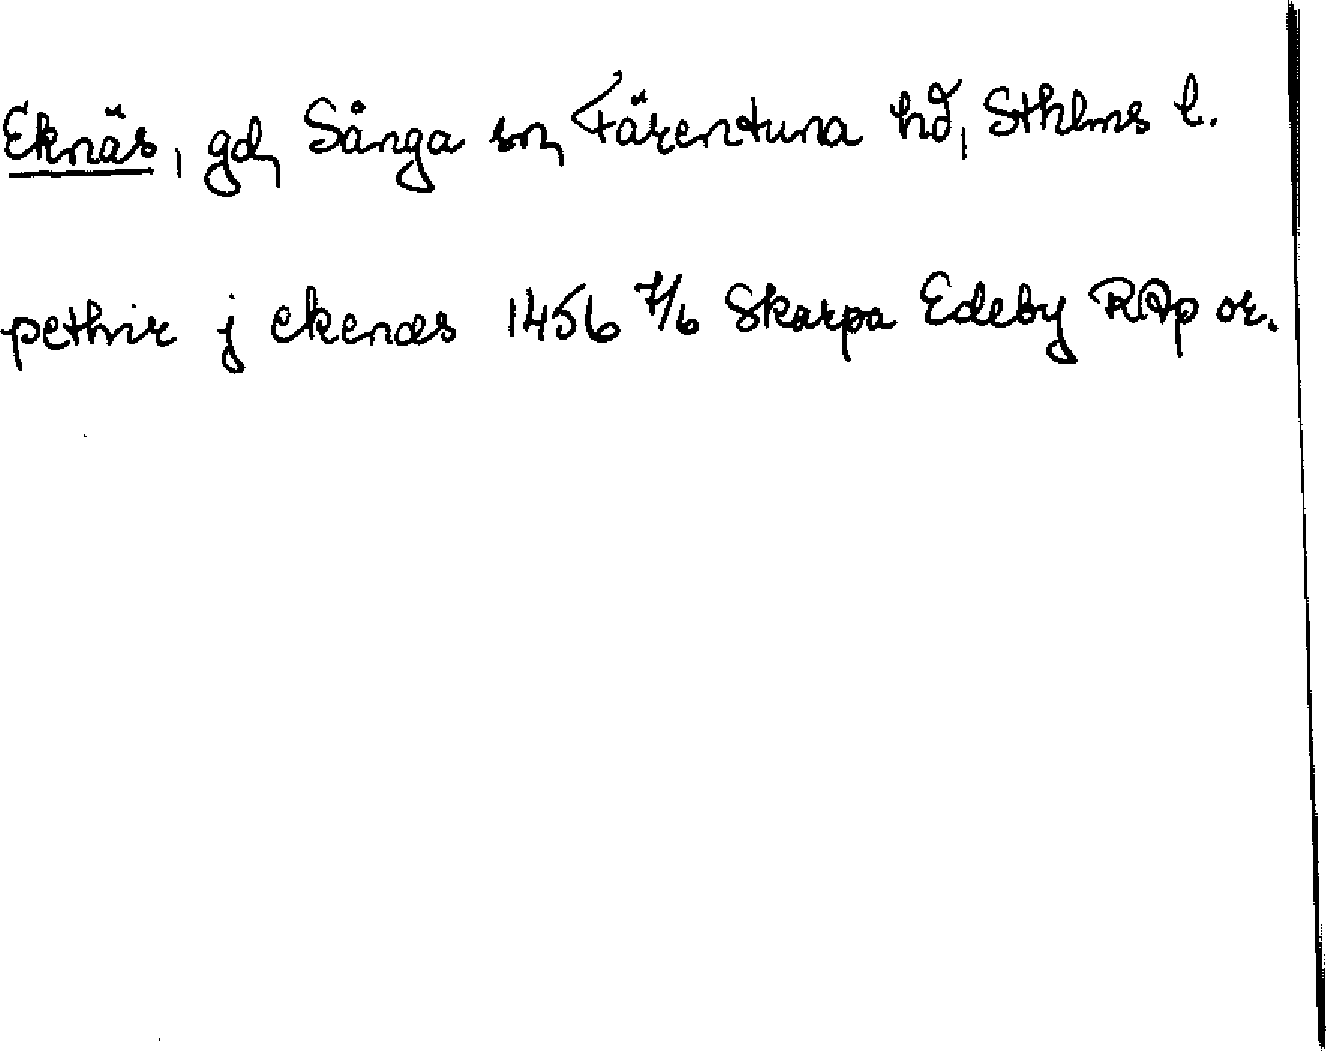 Eknäs, gd, Sånga sn, Färentuna hd, Sthlms l.
pethir j ekenæs 1456 7/6 Skarpa Edeby RAp or.